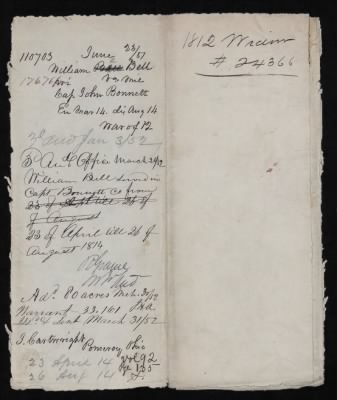 110703 June 23/57
William Bell
17676 pri Va Mil
Cap John Bonnett
En Mar 14. dis Aug 14
War of 12
Jan 3/52
3d Aud Office March 29/52
William Bell served in
Capt Bonnett Co from
23 of Sept till 26 of
of August
23 of April till 26 of
August 1814
Ad. 80 acres Mch. 30/52
Warrant 33.161
sent March 31/52
J. Cartwright
Pomeroy Ohio
23 April 14 vol 92
26 Aug 14 Pge 135
1812 Wr
# 24366